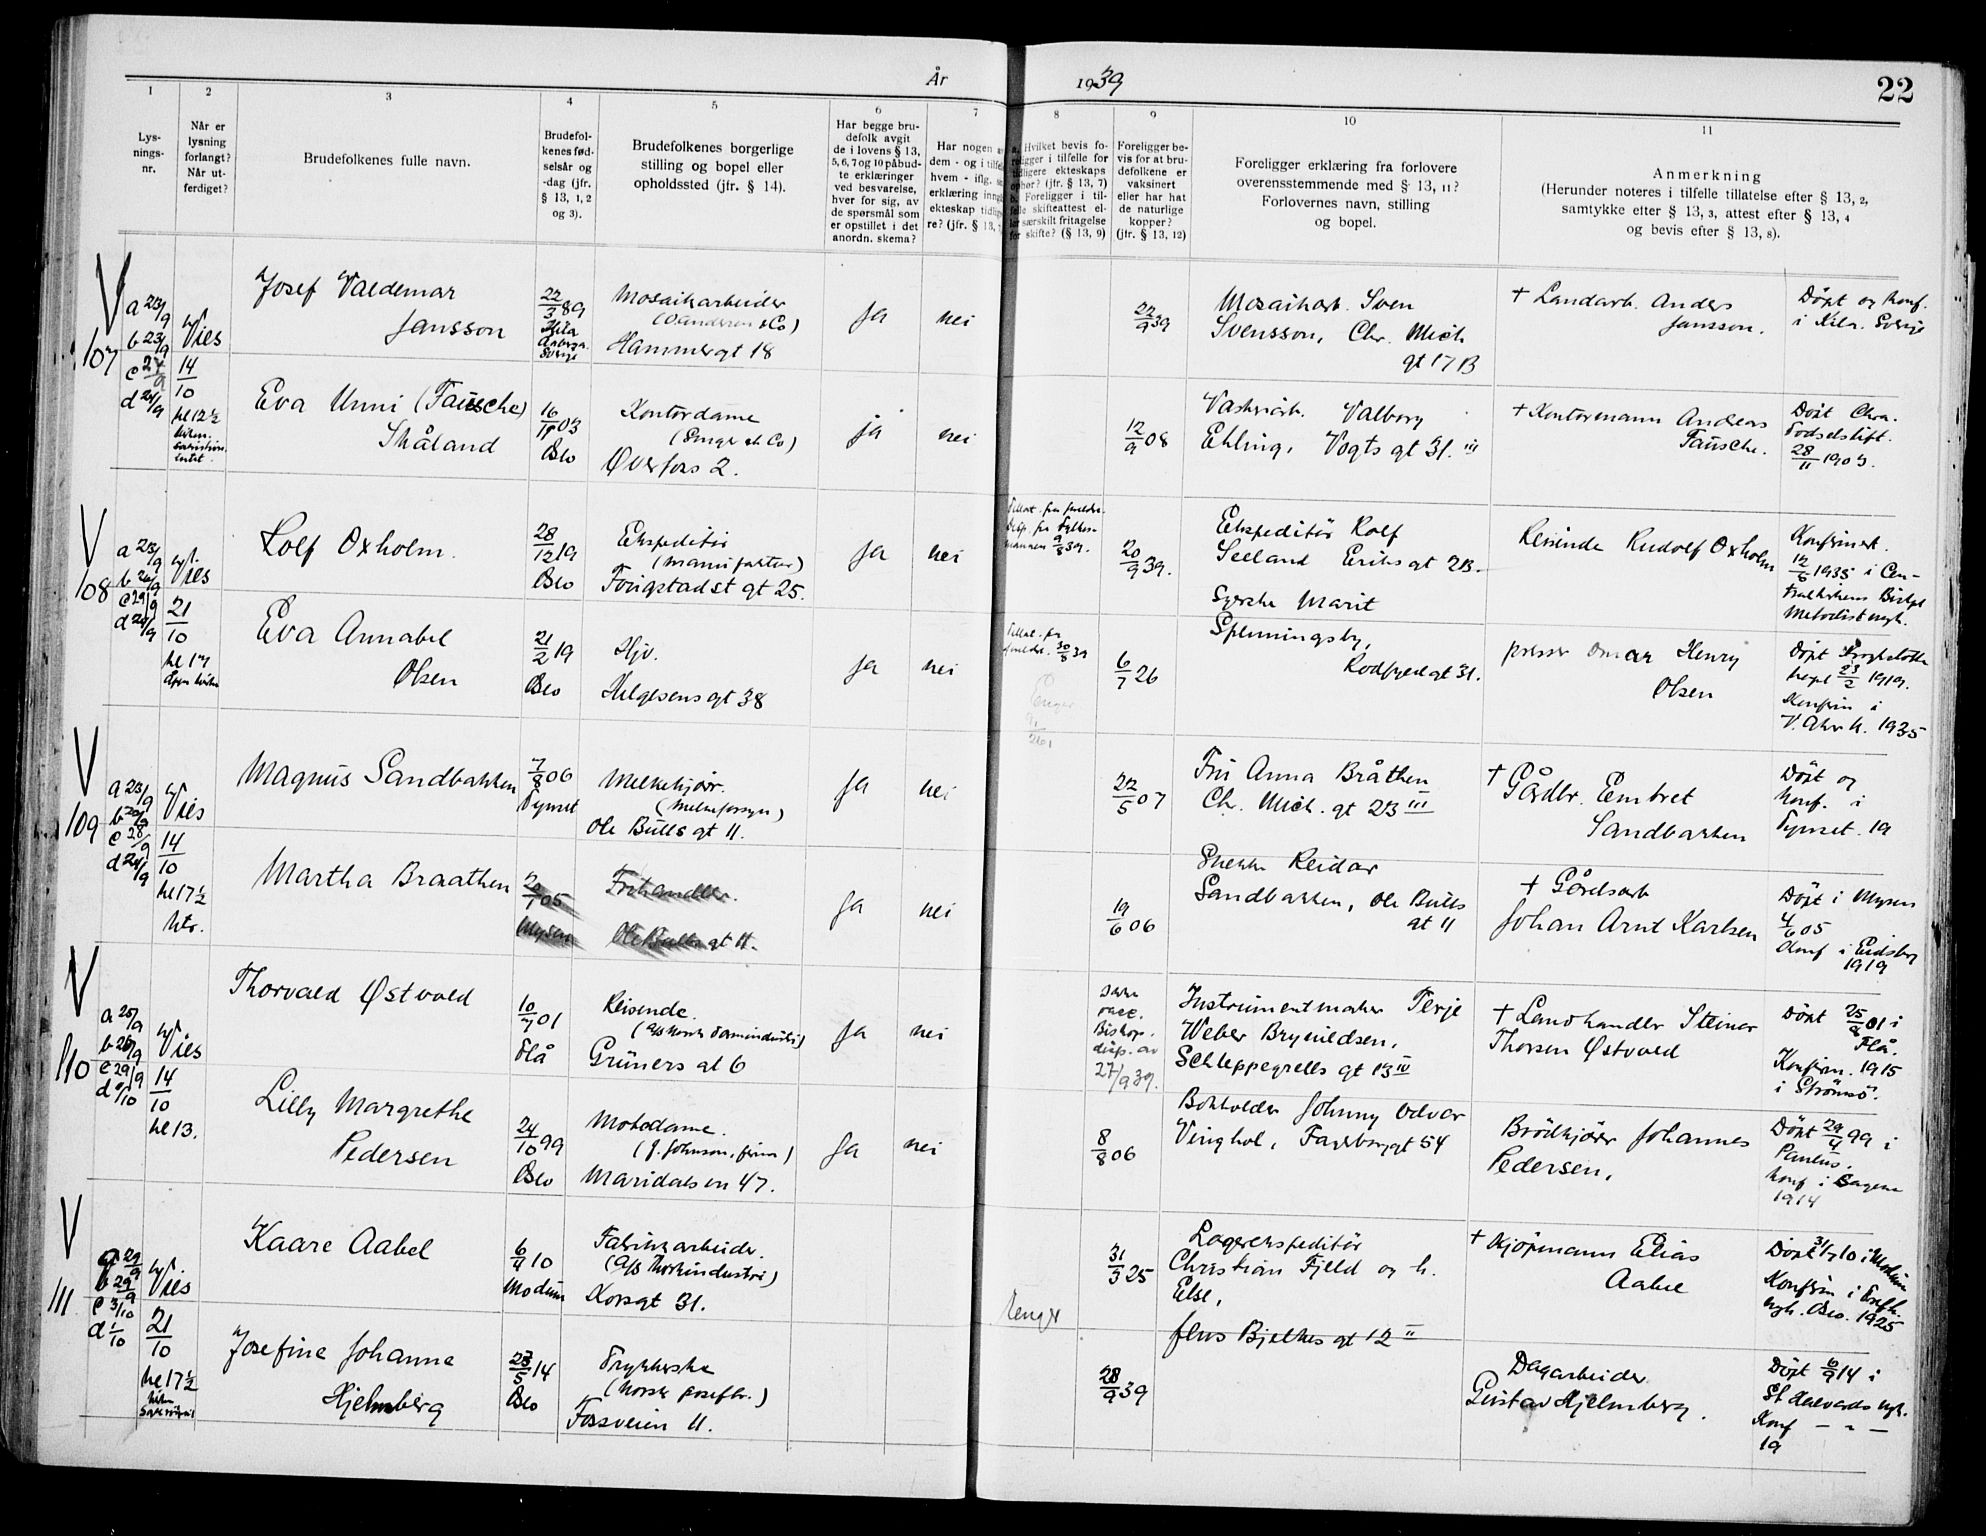 År
1939
22
1
2
3
4
5
6
7
8
9
10
11
Lys-
nings-
nr.
Når er
lysning
forlangt?
Når ut-
ferdiget?
Brudefolkenes fulle navn.
Brudefol-
kenes fød-
selsår og
-dag (jfr.
§ 13, 1, 2
og 3).
Brudefolkenes borgerlige
stilling og bopel eller
opholdssted (jfr. § 14).
Har begge bru-
defolk avgit
de i lovens § 13,
5, 6, 7 og 10 påbud-
te erklæringer
ved besvarelse,
hver for sig, av
de spørsmål som
er opstillet i det
anordn. skema?
Har nogen a
dem - og i tilfe
hvem - iflg.
erklæring inng
ekteskap tidlig
re? (jfr. § 13,
a. Hvilket bevis fo-
religger i tilfelle for
tidligere ekteskaps
ophør? (jfr. § 13, 7)
b. Foreligger i til-
felle skifteattest el-
ler særskilt fritagelse
for skifte? (§ 13, 9)
Foreligger be-
vis for at bru-
defolkene er
vaksinert
eller har hat
de naturlige
kopper?
(jfr. § 13, 12)
Foreligger erklæring fra forlovere
overensstemmende med § 13, 11?
Forlovernes navn, stilling
og bopel.
Anmerkning
(Herunder noteres i tilfelle tillatelse efter § 13, 2,
samtykke efter § 13, 3, attest efter § 13, 4
og bevis efter § 13, 8).
V
107
a 23/9
b 23/9
d 24/9
Vies
14/10
kl 12 ½
Josef Valdemar
Jansson
22/3 89
Sverige
Mosaikarbeider
Hammergt 18
Ja
nei
22/9 39
Mosaikarb. Sven
Svensson, Chr. Mich
gt 17 B
+ Landarb. Anders
Jansson.
Døpt og konf.
i Kila. Sverige
Eva Unni (Fausche)
Skåland
Oslo
Kontordame
Øverfoss 2.
ja
nei
12/9 08
Valborg
Ehling, Vogts gt 31. III
+ Kontormann Andreas
Fausche.
Døpt Chra.
Fødselsstift.
28/11 1903.
V
108
a 23/9
Vies
21/10
kl 17
Rolf Oxholm.
28/12 19
Oslo
Ekspeditør
(manufaktur)
Fougstadst gt 25.
Ja
nei
20/9 39.
Ekspeditør Rolf
Seeland Eriks gt 2B.
Reisende Rudolf Oxholm
Konfirmert.
12/5 1935 i Cen-
Metodistmgh.
Eva Annabel
Olsen
21/2 19
Oslo
Hjv.
Helgesens gt 38
Ja
nei
6/7 26
Syerske Marit
Spenningsby,
Rodfyed gt 31.
presser Omar Henry
Olsen
Døpt
kapel 23/2 1919.
Konfirm i
V. Aker k. 1935
Enger
V
109
a 23/9
c 28/9
Vies
14/10
kl 17 ½
Magnus Sandbakken
7/8 06
Tynset
Melkekjører.
(melkeforsyn)
Ole Bulls gt 11.
Ja
nei
22/5 07
Fru Anna Bråthen
Ch. Mich. gt 23 III
+ Gårdbr. Embret
Sandbakken
Døpt og
konf. i
Tynset. 19
Martha Braathen
05
Mysen
Fruhandler.
Ole Bulls gt 11.
Ja
nei
19/6 06
Reidar
Sandbakken, Ole Bulls
gt 11
+ Gårdsarb
Johan Arnt Karlsen
Døpt i Mysen
4/6 05
Konf i Eidsberg
1919
V
110
c 29/9
Vies
14/10
kl 13.
Thorvald Østvold
10/7 01
Flå
Reisende.
Grüners gt 6
Ja
nei
Bishop.
disp. av
27/9 39.
Instrumentmaker Terje
Weber Brynildsen,
Schleppegrells gt 13 IV
+ Landhandler Steinar
Thorsen Østvold
Døpt 25/8 01 i
Flå.
Konfirm. 1915
i Strømsø.
Lilly Margrethe
Pedersen
24/10 99
Oslo
Motedame.
(J. Johnson, firma)
Maridalsvn 47.
Ja
nei
8/8 06
Bokholder Johnny Odvar
Vinghol, Faxeborg gt 54
Brødkjører Johannes
Pedersen,
Døpt 29/4 99 i
Paulus.
konf i Sagene
1914
V
111
b 29/9
c 3/10
d 1/10
Vies
21/10
kl 17 ½
Kaare Aabel
6/9 10
Modum
Fabrikkarbeider.
(A/S Korkindustri)
Korsgt 31.
31/3 25
Lagerekspeditør
Christian Fjeld og h.
Else,
Jens Bjelkes gt 12 II
+ Kjøpmann Elias
Aabel
Konfirm i
Oslo. 1925
Enger
Josefine Johanne
Hjelmberg
23/5 14
Oslo
Trykkerske
Fossveien 11.
28/9 39
Dagarbeider
Gustav Hjelmberg.
Døpt 6/9 14 i
St Halvards mgh.
Konf — " —
19